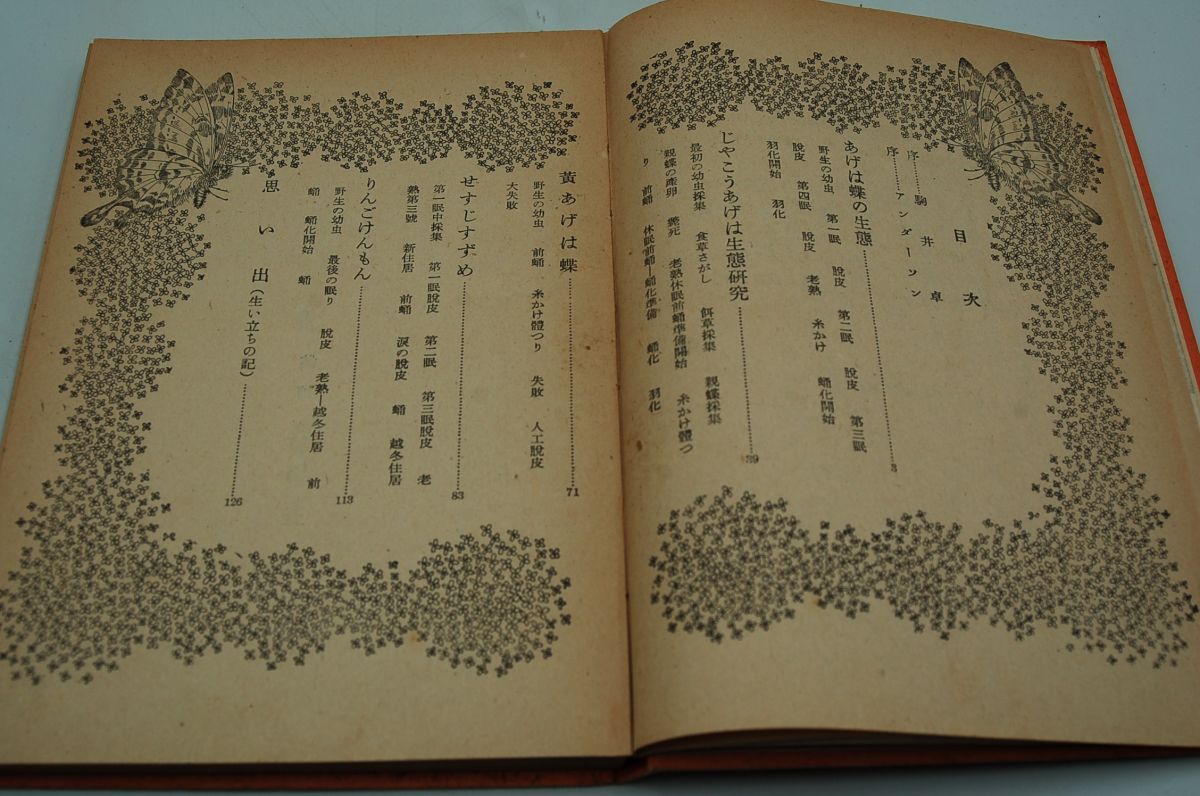 目次
序……駒井卓
序……アンダーソン
あげは蝶の生態……3
野生の幼虫 第一眠 脱皮 第二眠 脱皮 第三眠
脱皮 第四眠 脱皮 老熟 糸かけ 蛹化開始
羽化開始 羽化
じゃこうあげは生態研究……39
最初の幼虫採集 食草さがし 餌草採集 親蝶採集
親蝶の産卵 斃死 老熟休眠前蛹準備開始 糸かけ體つ
り 前蛹 休眠前蛹―蛹化準備 蛹化 羽化
黃あげは蝶……71
野生の幼虫 前蛹 糸かけ體つり 失敗 人工脱皮
大失敗
せすじすずめ……83
第一眠中採集 第一眠脱皮 第二眠 第三眠脱皮 老
熟第三號 新住居 前蛹 涙の脱皮 蛹 越冬住居
りんごけんもん……113
野生の幼虫 最後の眠り 脱皮 老熟―越冬住居 前
蛹 蛹化開始 蛹
思い出(生い立ちの記)……126